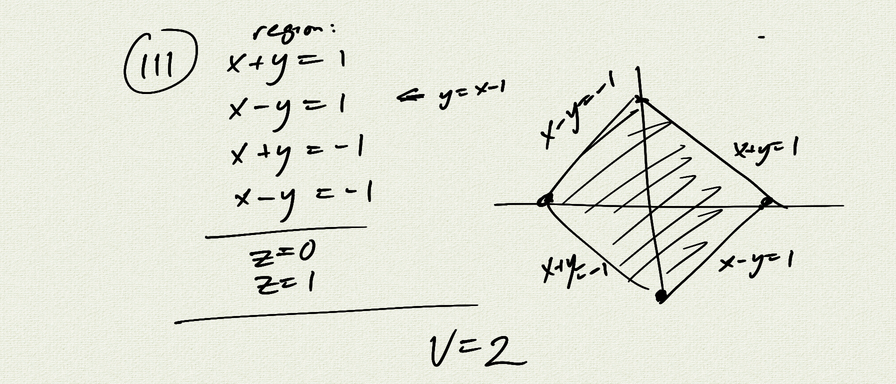 111
region:
x+y = 1
x-y = 1 ← y=x-1
x+y = -1
x-y = -1
z=0
z=1
V=2
x-y=-1
x+y=1
x+y=-1
x-y=1